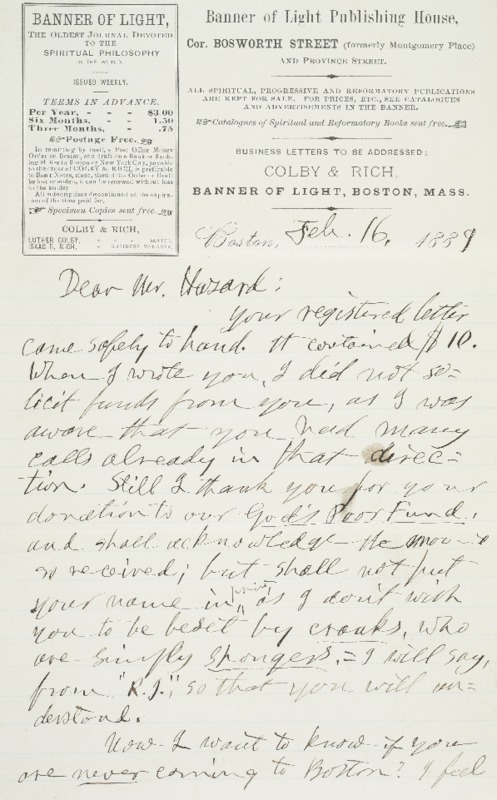 BANNER OF LIGHT,
THE OLDEST JOURNAL DEVOTED
TO THE
SPIRITUAL PHILOSOPHY
IN THE WORLD.
ISSUED WEEKLY.
TERMS IN ADVANCE.
Per Year, - - - $3.00
Six Months, - - - 1.50
Three Months, - - .75
Postage Free.
In remitting by mail, a Post-Office Money
Order on Boston, or a draft on a Bank or Bank-
ing House in Boston or New York City, payable
to the order of COLBY & RICH, is preferable
to Bank Notes,
All subscriptions discontinued at the expira-
tion of the time paid for.
Specimen Copies sent free.
COLBY & RICH,
LUTHER COLBY, - - - EDITOR.
ISAAC B. RICH, - - BUSINESS MANAGER.
Banner of Light Publishing House,
Cor. BOSWORTH STREET (formerly Montgomery Place)
AND PROVINCE STREET.
ALL SPIRITUAL, PROGRESSIVE AND REFORMATORY PUBLICATIONS
ARE KEPT FOR SALE. FOR PRICES, ETC., SEE CATALOGUES
AND ADVERTISEMENTS IN THE BANNER.
Catalogues of Spiritual and Reformatory Books sent free.
BUSINESS LETTERS TO BE ADDRESSED:
COLBY & RICH,
BANNER OF LIGHT, BOSTON, MASS.
Boston, Feb. 16, 1889
Dear Mr. Hazard:
Your registered letter
came safely to hand. It contained $10.
When I wrote you, I did not so=
licit funds from you, as I was
aware that you had many
calls already in that direc=
tion. Still I thank you for your
donation to our God's Poor Fund,
and shall acknowledge the
so received; but shall not put
your name in print, as I don't wish
you to be beset by cranks, who
are simply spongers. = I will say,
from "R.J.", so that you will un=
derstand.
Now I want to know if you
are never coming to Boston? I feel